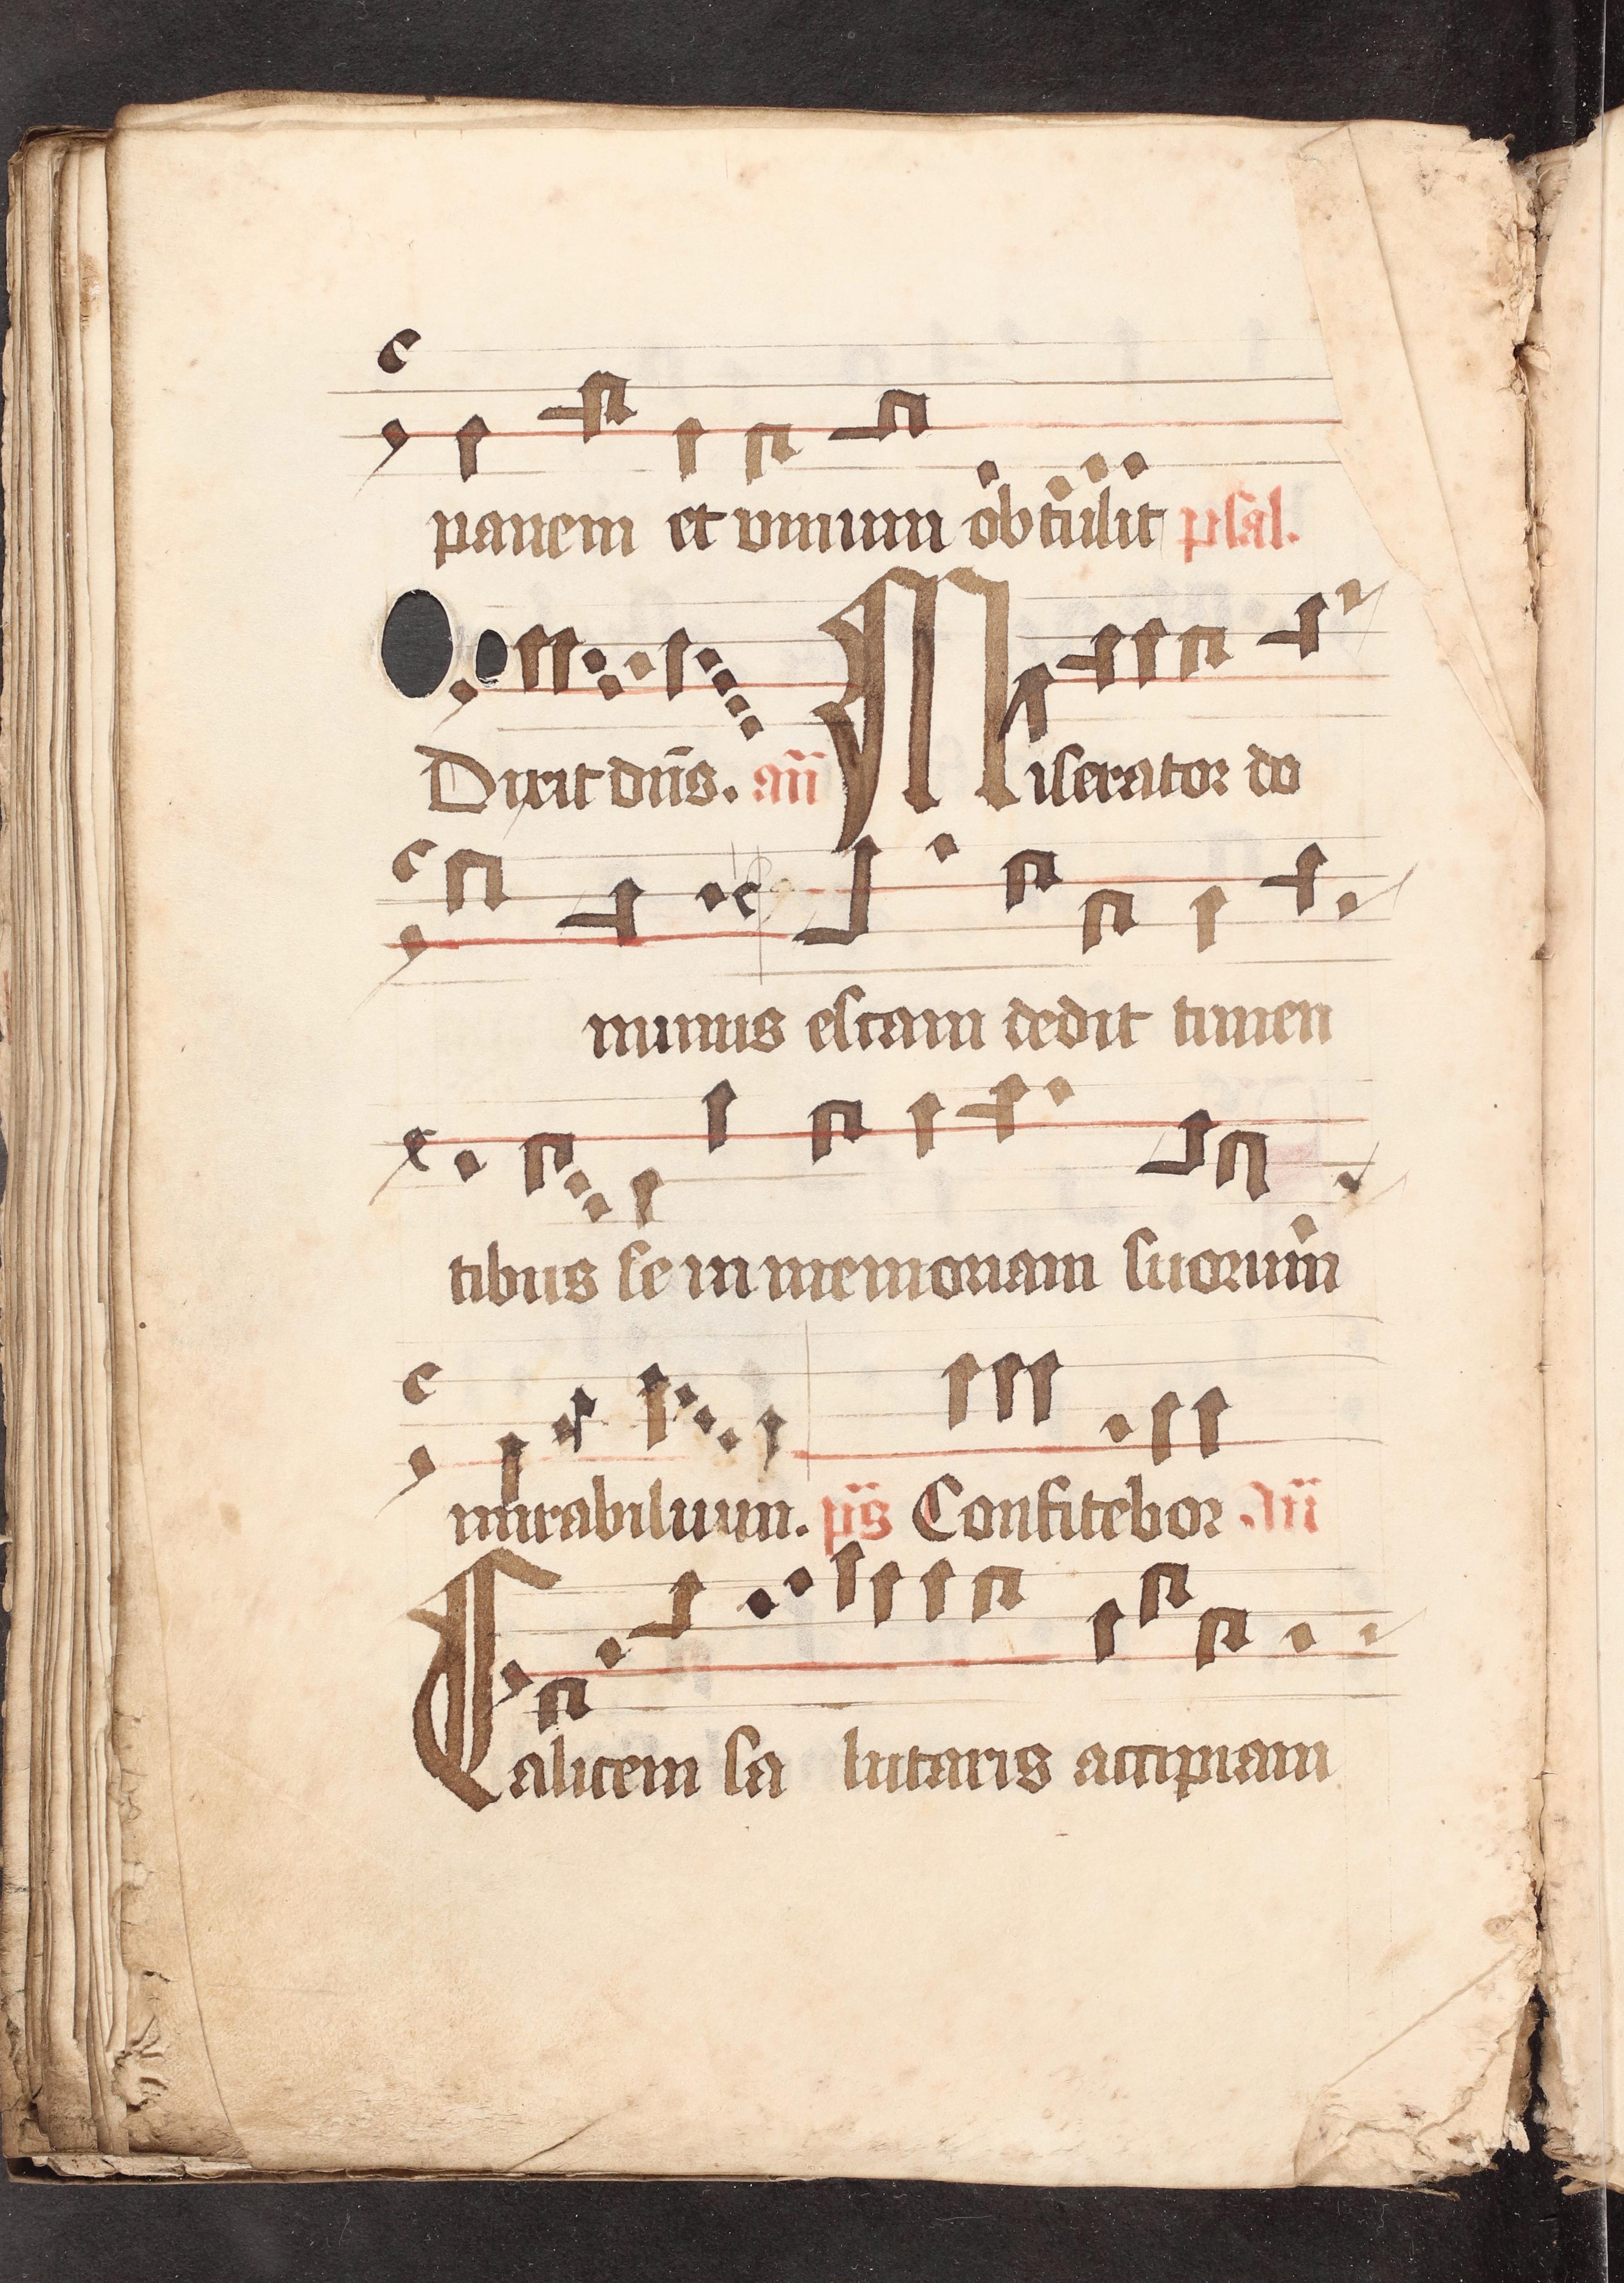 panem et vinum obtulit psal.
Dixit dns. an Miserator do
minus escam dedit timen
tibus se in memoriam suorum
mirabilium. ps Confitebor An
Calicem sa lutaris accipiam